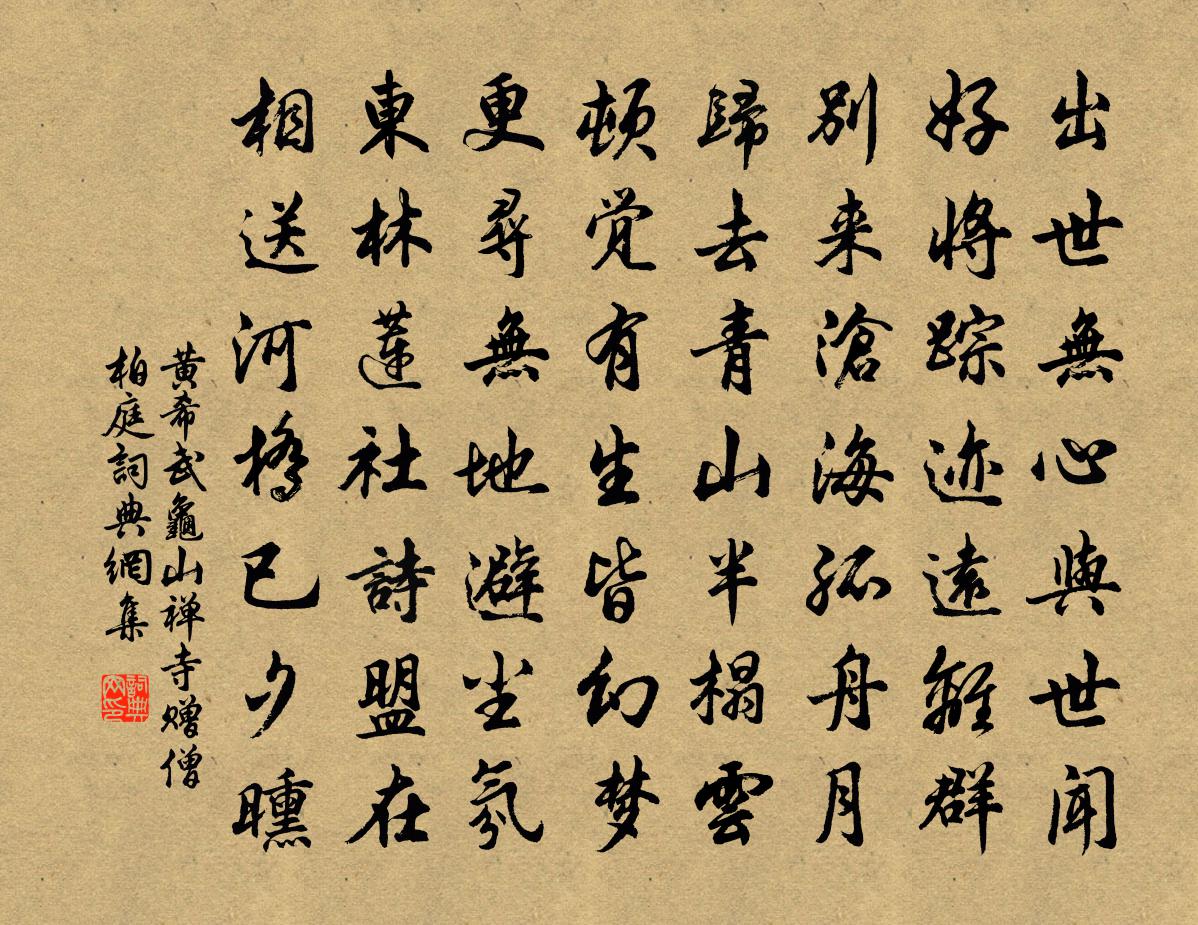 出世無心與世聞
好將踪迹遠離群
別来滄海孤舟月
歸去青山半榻雲
頓觉有生皆幻梦
更尋無地避尘氛
東林蓮社詩盟在
相送河橋已夕曛
黄希武龜山禅寺赠僧
柏庭詞典網集
詞典網印